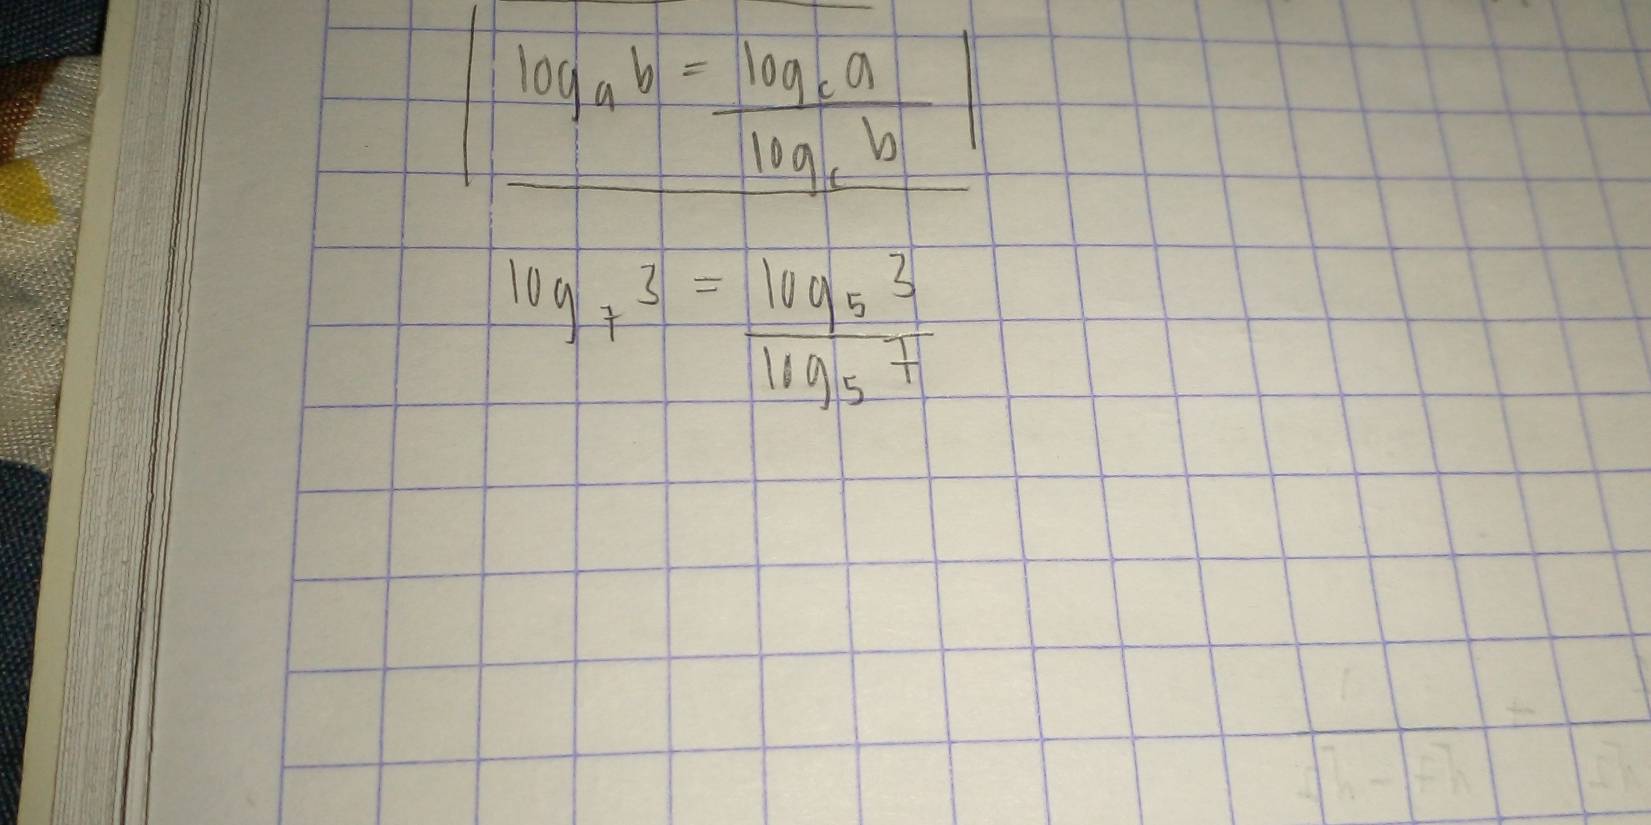 log_a b = log_c a / log_c b
log_7 3 = log_5 3 / log_5 7